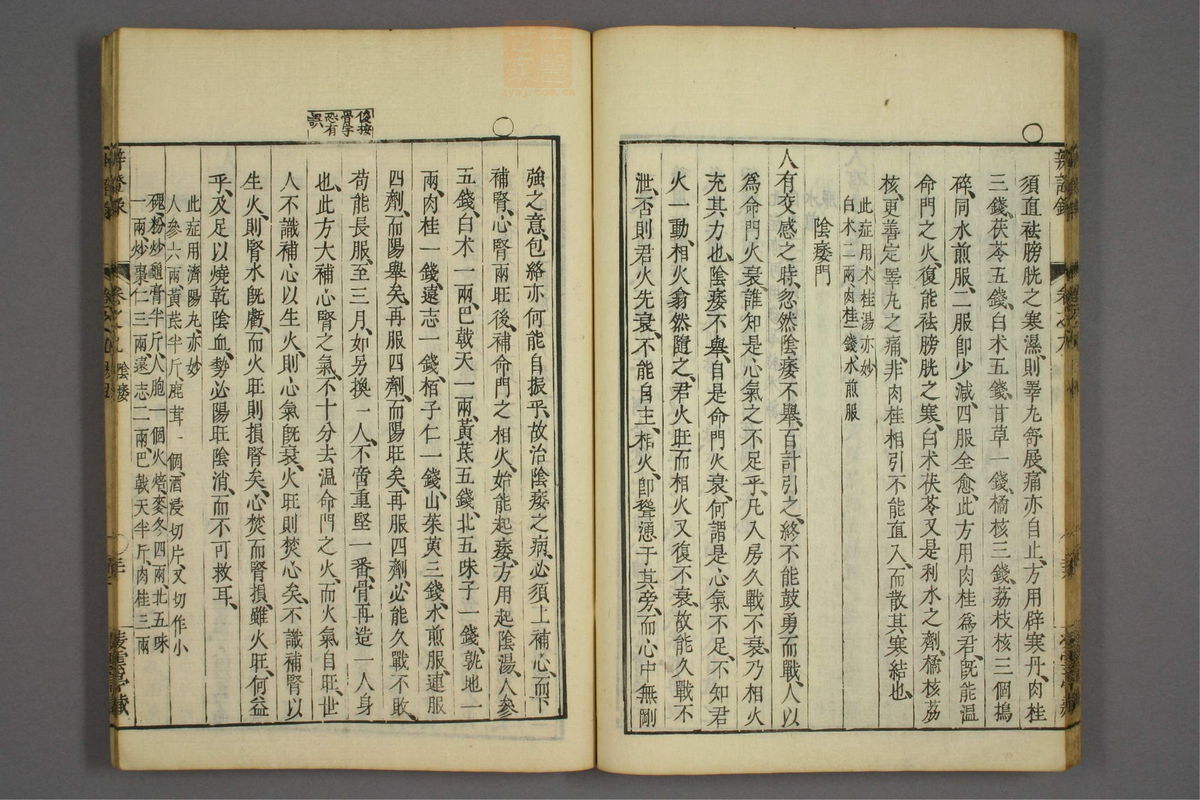 須直祛膀胱之寒濕、則睪丸舒展、痛亦自止、方用辟寒丹、肉桂
三錢、茯苓五錢、白术五錢、甘草一錢、橘核三錢、荔枝核三個搗
碎、同水煎服、二服卽少減、四服全愈、此方用肉桂爲君、旣能溫
命門之火、復能祛膀胱之寒、白术茯苓又是利水之劑、橘核荔
核、更善定睪丸之痛、非肉桂相引、不能直入、而散其寒結也、
此症用术桂湯亦妙
白术二兩、肉桂一錢水煎服
陰痿門
人有交感之時、忽然陰痿不舉、百計引之、終不能鼓勇而戰、人以
爲命門火衰、誰知是心氣之不足乎、凡入房久戰不衰、乃相火
充其力也、陰痿不舉、自是命門火衰、何謂是心氣不足、不知君
火一動、相火翕然隨之、君火旺而相火又復不衰、故能久戰不
泄、否則君火先衰、不能自主、相火卽聳慂于其旁、而心中無剛
強之意、包絡亦何能自振乎、故治陰痿之病、必須上補心、而下
補腎、心腎兩旺、後補命門之相火、始能起痿、方用起陰湯、人參
五錢、白术一兩、巴戟天一兩、黃芪五錢、北五味子一錢、熟地一
兩、肉桂一錢、遠志一錢、栢子仁一錢、山茱萸三錢、水煎服、連服
四劑、而陽舉矣、再服四劑、而陽旺矣、再服四劑、必能久戰不敢、
苟能長服、至三月、如另換一人、不啻重堅一番、骨再造一人身
也、此方大補心腎之氣、不十分去溫命門之火、而火氣自旺、世
人不識補心以生火、則心氣旣衰、火旺則焚心矣、不識補腎以
生火、則腎水旣虧、而火旺則損腎矣、心焚而腎損、雖火旺、何益
乎、及足以燒乾陰血、勢必陽旺陰消、而不可救耳、
此症用濟陽丸、亦妙
人參六兩、黃芪半斤、鹿茸一個、酒浸切片、又切作小
塊、粉炒、龜膏半斤、人胞一個火焙、麥冬四兩、北五味
一兩、炒棗仁三兩、遠志二兩、巴戟天半斤、肉桂三兩
俊按
骨字
恐有
誤
陰痿